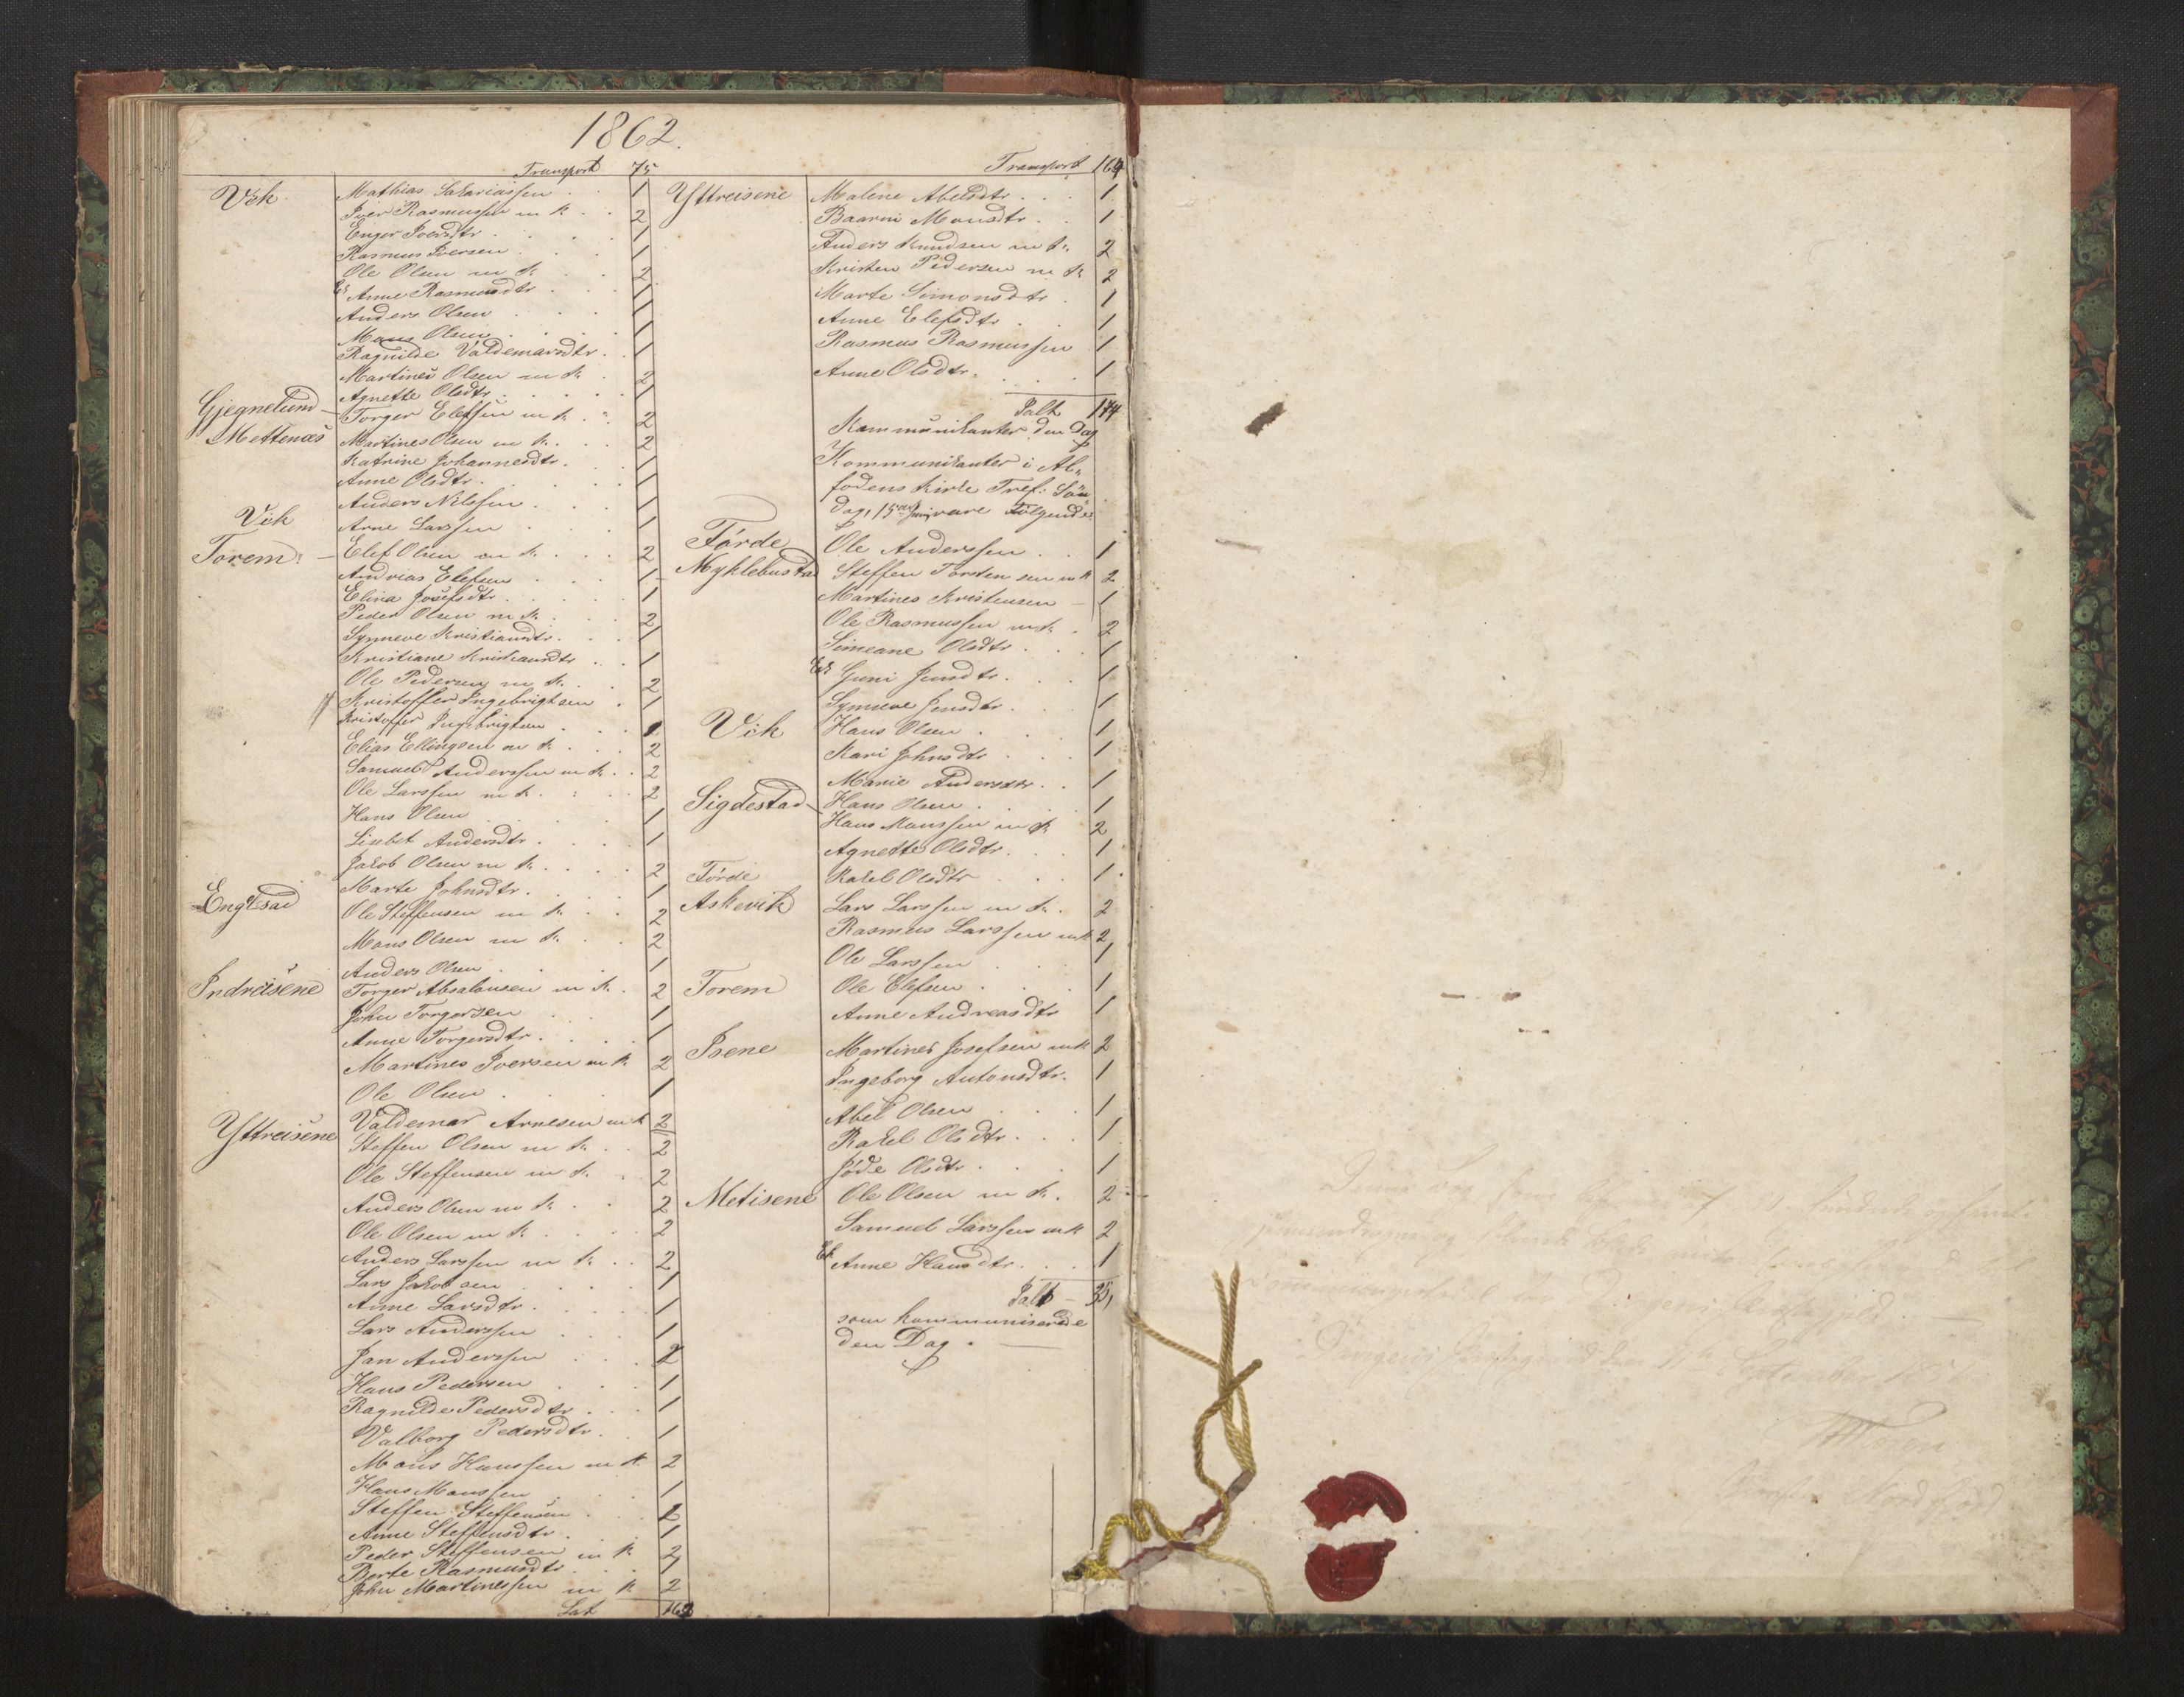 1862.
Transport 75
Vik Mathias Sakariassen . . 1
Iver Rasmussen m k. . . 2
Enger Iversdtr . . . 1
Rasmus Iversen . . . 1
Ole Olsen m k. . . 2
Ek Anne Rasmusdtr . . . 1
Anders Olsen . . . 1
Mons Olsen . . . 1
Ragnilde Valdemarsdtr. . 1
Martines Olsen m k. . 2
Agnette Olsdtr. . . . 1
Gjegnelund — Torger Elefsen m k. . 2
Mettenæs Martines Olsen m k. . . 2
Katrine Johannesdtr. . . 1
Anne Olsdtr. . . . 1
Anders Nilssen . . . 1
Vik Arne Larssen . . . 1
Torem. — Elef Olsen m k. . . . 2
Andrias Elefsen . . . 1
Elina Josefsdtr . . . 1
Peder Olsen m k. . . . 2
Synneve Kristiansdtr. . . 1
Kristiane Kristiansdtr . . 1
Ole Pedersen m k. . . 2
Kristoffer Ingebrigtsen . 1
Kristoffer Ingebrigtsen . . .
Elias Ellingsen m k. . . . 2
Samuel Anderssen m k. . . 2
Ole Larssen m k. . . . 2
Hans Olsen . . . 1
Lisbet Andersdtr. . . . 1
Jakob Olsen m k. . . . 2
Marte Johnsdtr. . . . 1
Ole Steffensen m k. . . 2
Mons Olsen m k. . . 2
Anders Olsen . . . 1
Indreisene Torger Absalonsen m k. . 2
John Torgersen . . . 1
Anne Torgersdtr. . . . 1
Martines Iversen m k 2
Ole Olsen . . . 1
Yttreisene Valdemar Arnesen m k 2
Steffen Olsen m k. . . 2
Ole Steffensen m k. . . 2
Anders Olsen m k. . . 2
Ole Olsen m k. . . . 2
Anders Larssen m k. . . 2
Lars Jakobsen . . . 1
Anne Larsdtr. . . . 1
Lars Anderssen . . . 1
Jan Anderssen . . . 2
Hans Pedersen . . . 1
Ragnilde Pedersdtr . . . 1
Valborg Pedersdtr. . 1
Mons Hanssen m k 2
Hans Monssen . . . 1
Steffen Steffensen . . .
Anne Steffensdtr . . . 1
Peder Steffensen m k 2
Berte Rasmusdtr . . . 1
John Martinessen m k 2
Lat
Transport 164
Yttreisene Malene Abelsdtr. . . . 1
Monsdtr. . . 1
Anders Knudsen m k. 2
Kristen Pedersen m k 2
Marte Simonsdtr . 1
Anne Elefsdtr . . 1
Rasmus Rasmussen 1
Anne Olsdtr. . . . 1
Ialt 174
Kommunikanter den Dag
Kommunikanter i Al-
fodens Kirke Tref: Søn
dag, 15de Juni, vare følgende:
Førde Ole Anderssen . . 1
Myklebustad Steffen Torstensen m k 2
Martines Kristensen — 1
Ole Rasmussen m k. . 2
Simeane Olsdtr . . . 1
Ek Guni Jensdtr. . . 1
Synneve Jensdtr . . . 1
Vik Hans Olsen . . . 1
Kari Johnsdtr . . . 1
Marie Andersdtr. . . 1
Sigdestad — Hans Olsen . . . 1
Hans Monssen m k. 2
Agnette Olsdtr. . . 1
Førde Rakel Olsdtr . . . 1.
Askevik Lars Larssen m k. . 2
Rasmus Larssen m k 2
Ole Larssen . . . 1
Torem Ole Elefsen . . . 1
Anne Andreasdtr 1
Isene Martines Josefsen m k 2
Ingeborg Antonsdtr. 1
Abel Olsen . . . 1
Rakel Olsdtr. . . . 1
Olsdtr . . . 1
Metisene Ole Olsen m k. . 2
Samuel Larssen m k 2
Ek Anne Hansdtr. . . . 1
Ialt —
som kommunicerede
den Dag. —
Nordfjord